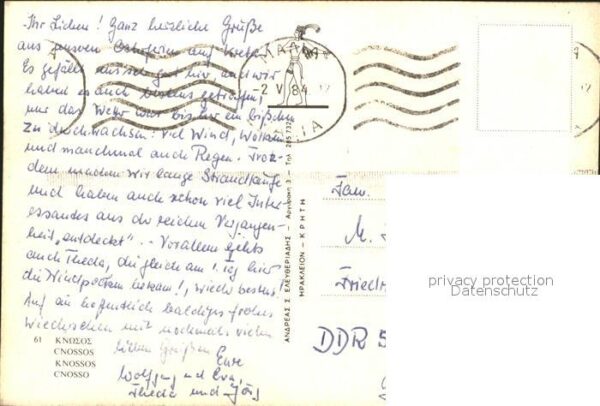 Ihr Lieben! Ganz herzliche Grüße
aus unserem Osterferien auf Kreta.
Es gefällt uns sehr gut hier, und wir
haben es auch bestens getroffen,
nur das Wetter war bisher ein bißchen
durchwachsen: viel Wind, Wolken
und manchmal auch Regen. Trotz-
dem machen wir lange Strandläufe
und haben auch schon viel Inter-
essantes aus der reichen Vergangen-
heit „entdeckt". - Vor allem geht's
auch Theda, die gleich am 1. Tag hier
die Windpocken bekam!, wieder bestens.
Auf ein hoffentlich baldiges frohes
Wiedersehen mit nochmals vielen
lieben Grüßen
Eure
Wolfgang und Eva,
Theda und Jörg
-2 V 84 12
61 ΚΝΩΣΟΣ
CNOSSOS
KNOSSOS
CNOSSO
ΑΝΔΡΕΑΣ Σ. ΕΛΕΥΘΕΡΙΑΔΗΣ
ΗΡΑΚΛΕΙΟΝ - ΚΡΗΤΗ
Fam.
M.
Friedr
DDR 5
privacy protection
Datenschutz